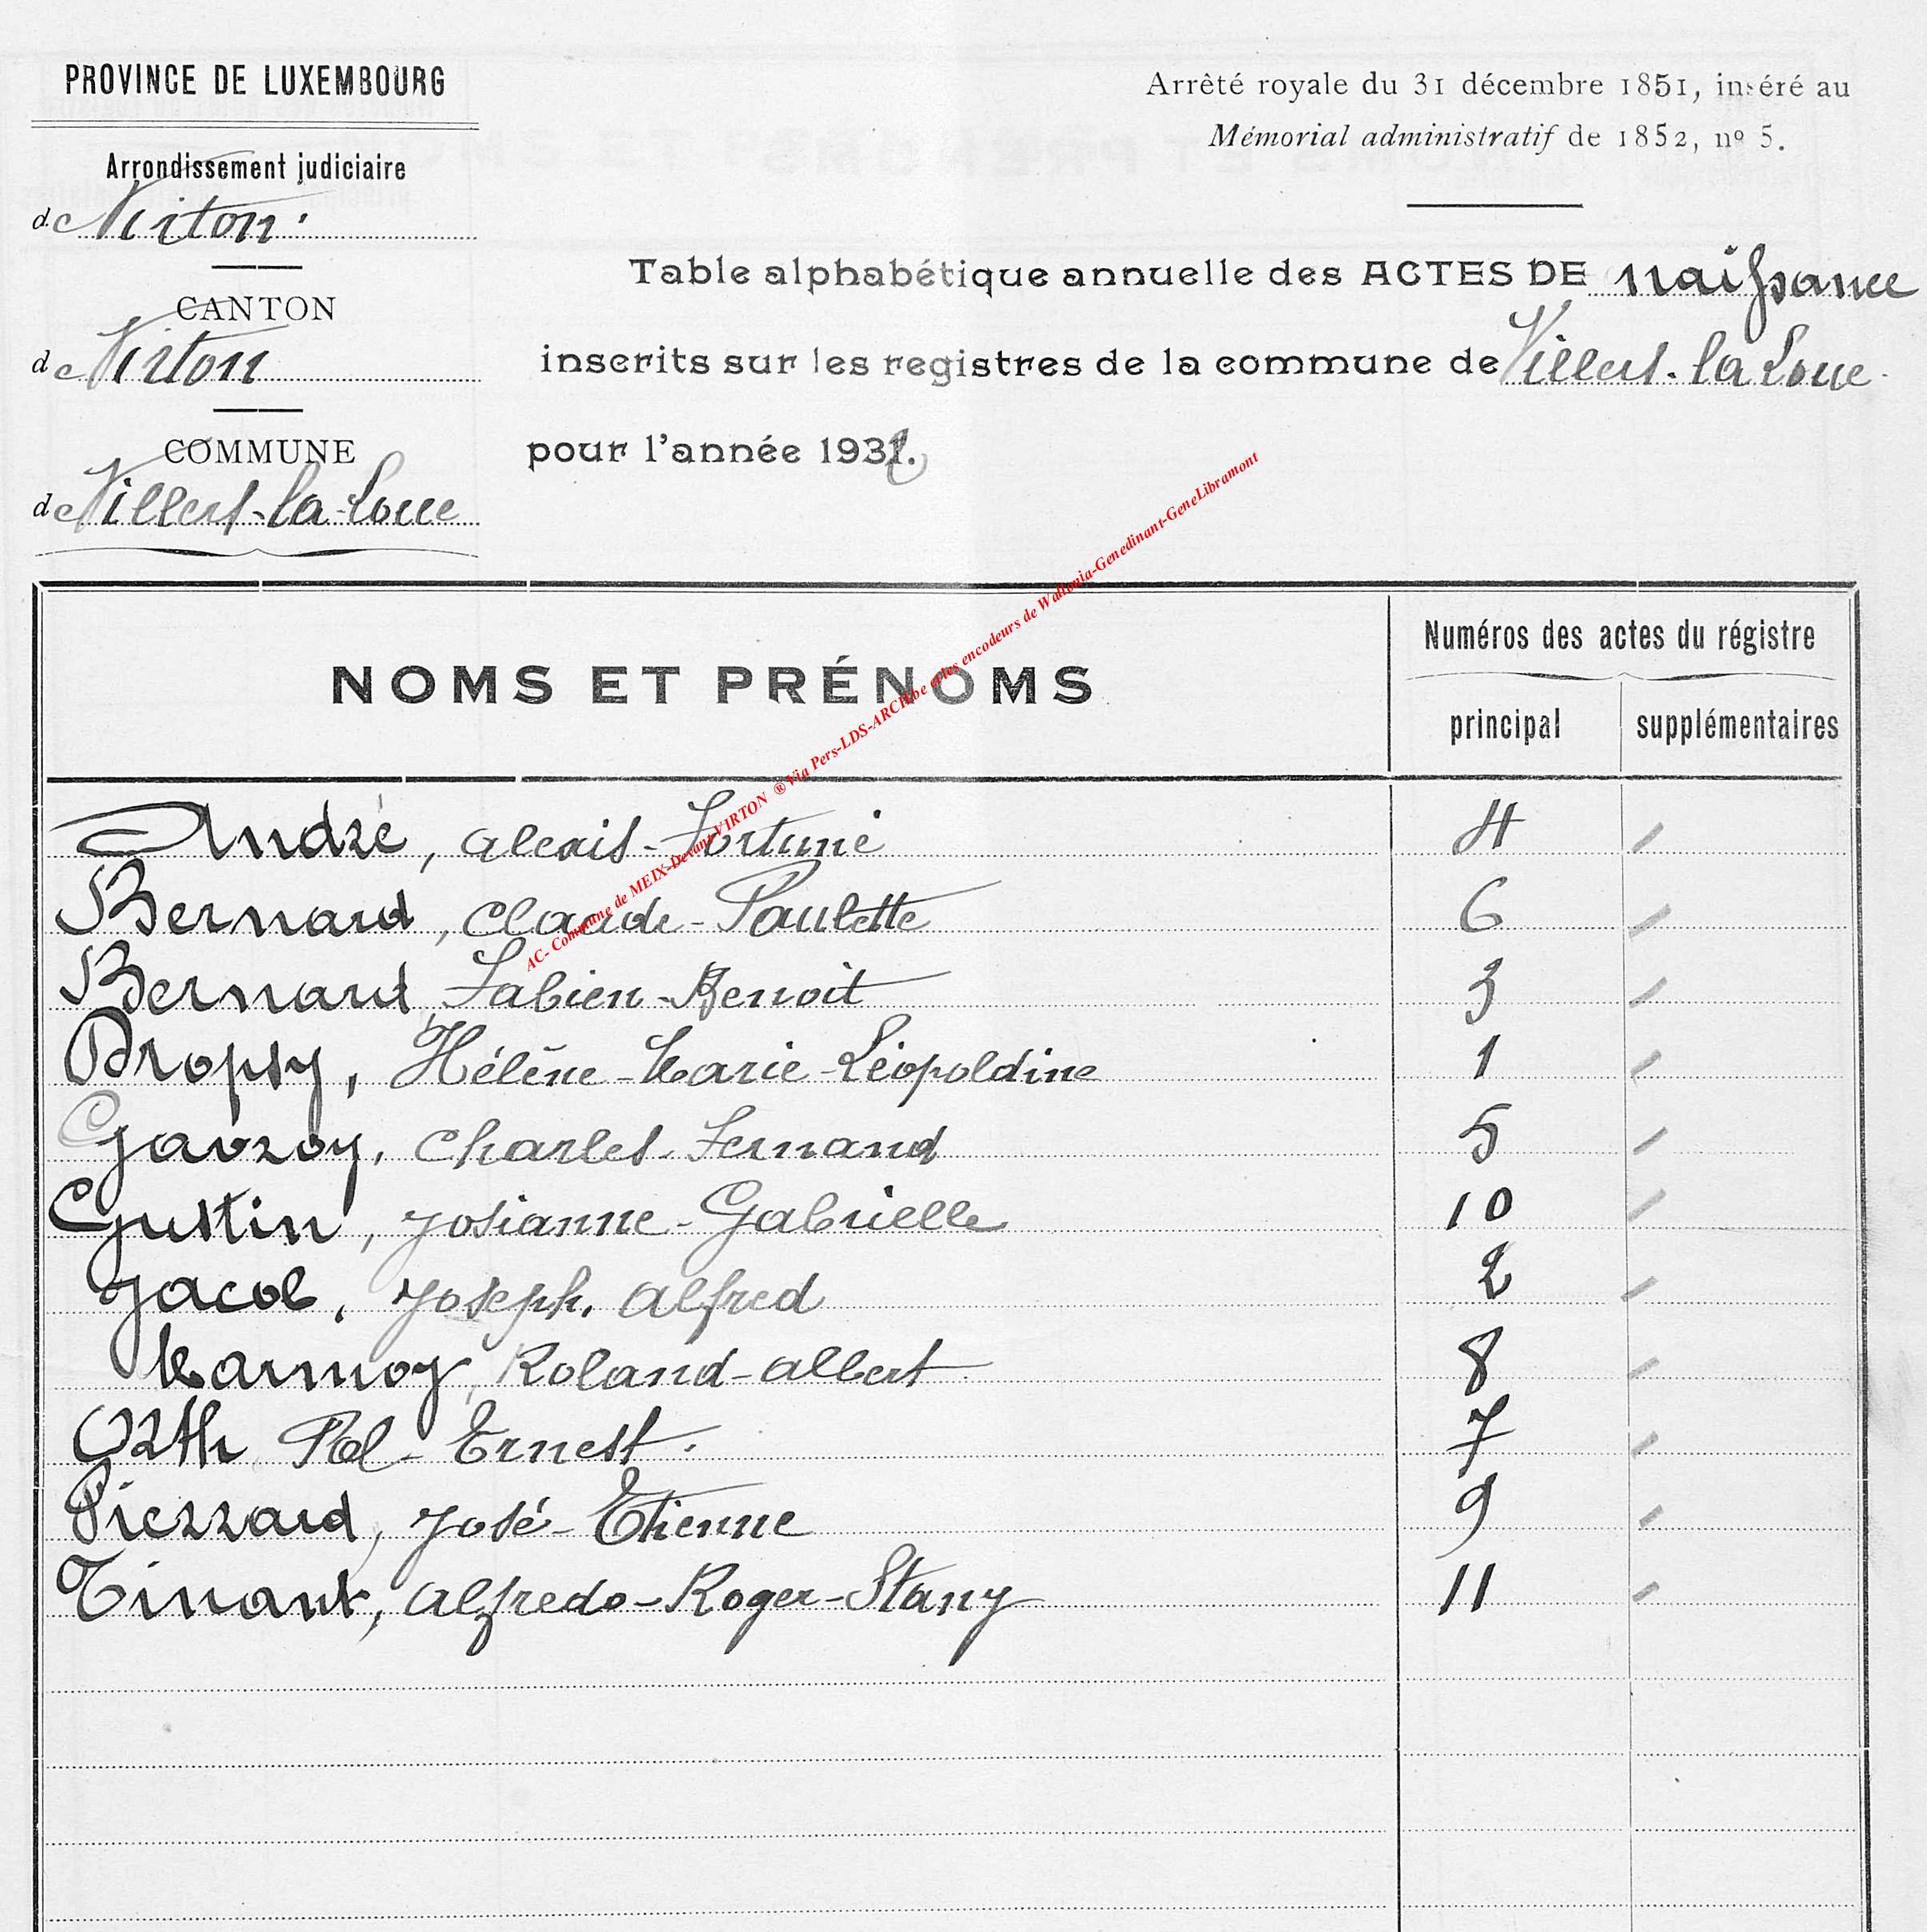 PROVINCE DE LUXEMBOURG
Arrondissement judiciaire
de Virton.
CANTON
de Virton
COMMUNE
de Villers-la-Loue
Arrêté royale du 31 décembre 1851, inséré au
Mémorial administratif de 1852, nº 5.
Table alphabétique annuelle des ACTES DE naissance
inscrits sur les registres de la commune de Villers-la Loue.
pour l'année 193
AC- Commune de MEIX-Devant-VIRTON ® Via Pers-LDS-ARCH.be et les encodeurs de Wallonia-Genedinant-GeneLibramont
NOMS ET PRÉNOMS
Numéros des actes du régistre
principal supplémentaires
André, Alexis-Fortuné 4 /
Bernard, Claude-Paulette 6 /
Bernard, Fabien-Benoit 3 /
Dropsy, Hélène-Marie-Léopoldine 1 /
Gavroy, Charles-Fernand 5 /
Gustin, Josianne-Gabrielle 10 /
Jacob, Joseph, Alfred 2 /
Marmoy, Roland-Albert 8 /
Orth Pol-Ernest. 7 /
Pierrard, José-Etienne 9 /
Tinant, Alfredo-Roger-Stany 11 /